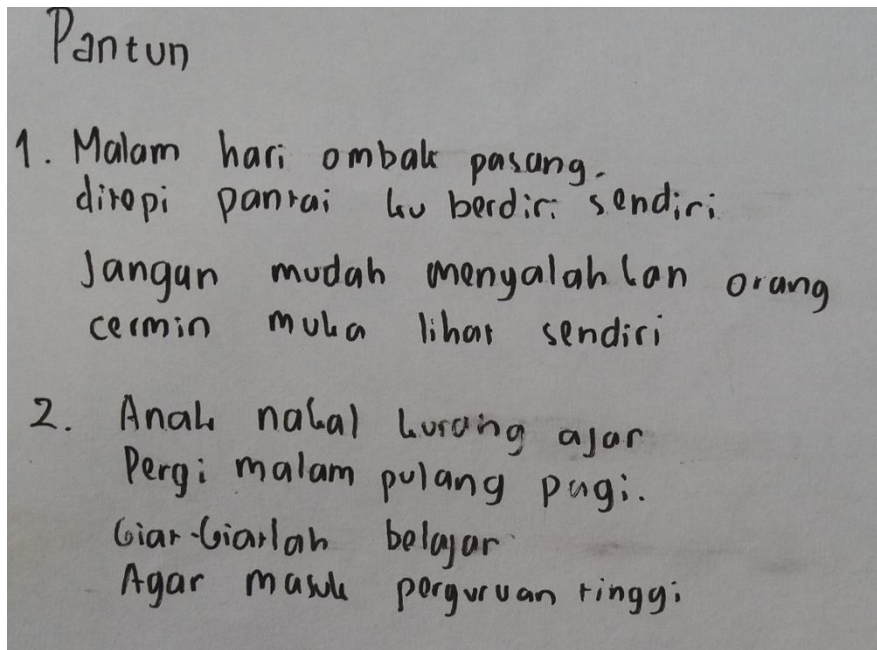 Pantun
1. Malam hari ombak pasang.
ditepi pantai ku berdiri sendiri
Jangan mudah menyalahkan orang
cermin muka lihat sendiri
2. Anak nakal kurang ajar
Pergi malam pulang pagi.
Giat-Giatlah belajar
Agar masuk perguruan tinggi